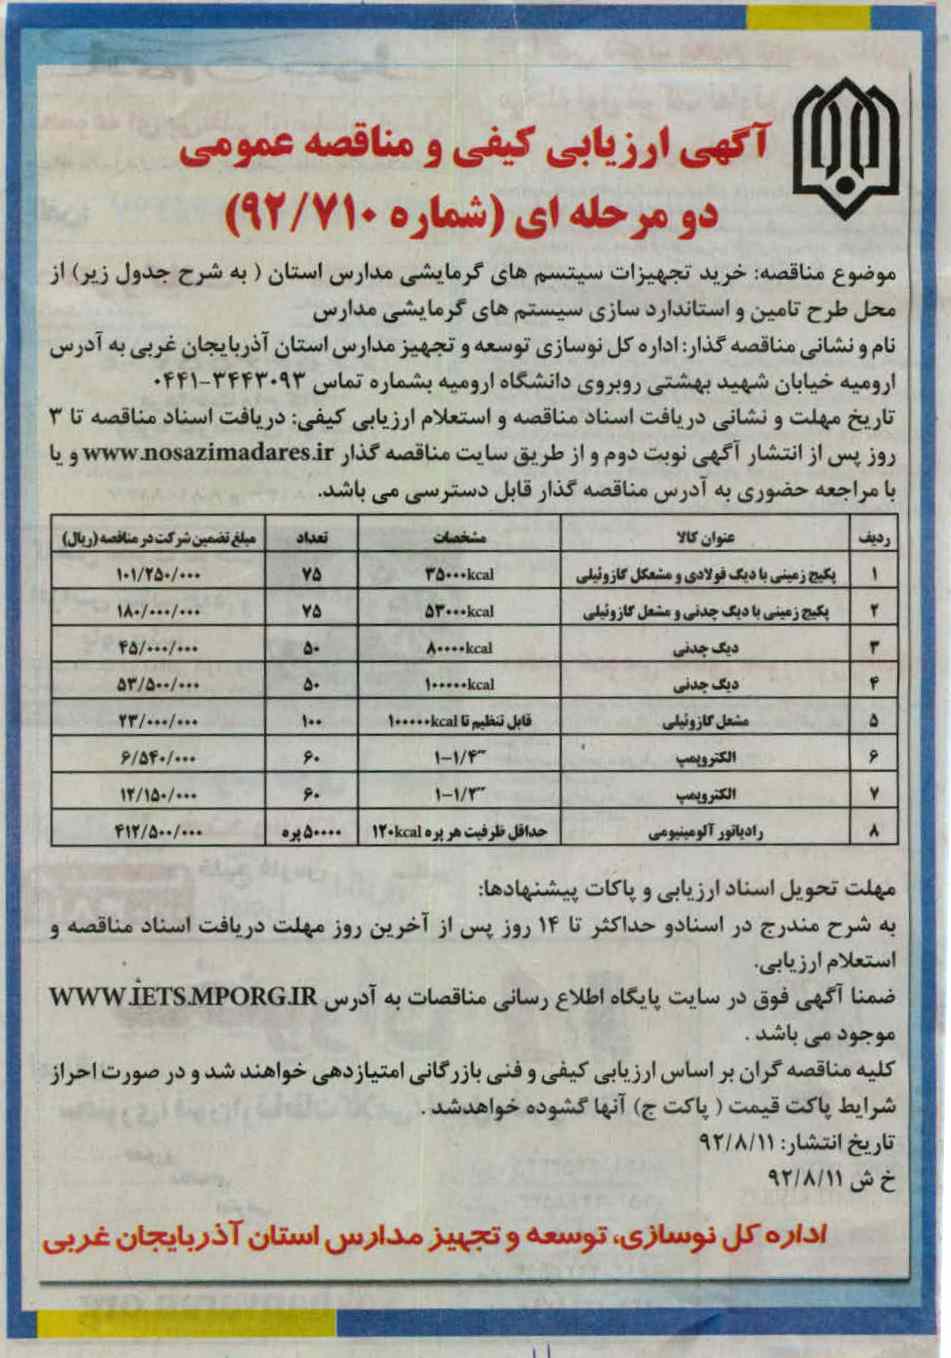 آگهی ارزیابی کیفی و مناقصه عمومی
دو مرحله ای (شماره ۹۲/۷۱۰)
موضوع مناقصه: خرید تجهیزات سیتسم های گرمایشی مدارس استان ( به شرح جدول زیر) از
محل طرح تامین و استاندارد سازی سیستم های گرمایشی مدارس
نام و نشانی مناقصه گذار: اداره کل نوسازی توسعه و تجهیز مدارس استان آذربایجان غربی به آدرس
ارومیه خیابان شهید بهشتی روبروی دانشگاه ارومیه بشماره تماس ۳۴۴۳۰۹۳-۰۴۴۱
تاریخ مهلت و نشانی دریافت اسناد مناقصه و استعلام ارزیابی کیفی: دریافت اسناد مناقصه تا ۳
روز پس از انتشار آگهی نوبت دوم و از طریق سایت مناقصه گذار www.nosazimadares.ir و یا
با مراجعه حضوری به آدرس مناقصه گذار قابل دسترسی می باشد.
ردیف عنوان کالا مشخصات تعداد مبلغ تضمین شرکت در مناقصه (ریال)
۱ پکیج زمینی با دیگ فولادی و مشعکل گازوئیلی ۳۵۰۰۰kcal ۷۵ ۱۰۱/۲۵۰/۰۰۰
۲ پکیج زمینی با دیگ چدنی و مشعل گازوئیلی ۵۳۰۰۰kcal ۷۵ ۱۸۰/۰۰۰/۰۰۰
۳ دیگ چدنی ۸۰۰۰۰kcal ۵۰ ۴۵/۰۰۰/۰۰۰
۴ دیگ چدنی ۱۰۰۰۰۰kcal ۵۰ ۵۳/۵۰۰/۰۰۰
۵ مشعل گازوئیلی قابل تنظیم تا ۱۰۰۰۰۰kcal ۱۰۰ ۲۳/۰۰۰/۰۰۰
۶ الکتروپمپ ۱-۱/۴" ۶۰ ۶/۵۴۰/۰۰۰
۷ الکتروپمپ ۱-۱/۲" ۶۰ ۱۲/۱۵۰/۰۰۰
۸ رادیاتور آلومینیومی حداقل ظرفیت هر پره ۱۲۰kcal ۵۰۰۰۰پره ۴۱۲/۵۰۰/۰۰۰
مهلت تحویل اسناد ارزیابی و پاکات پیشنهادها:
به شرح مندرج در اسنادو حداکثر تا ۱۴ روز پس از آخرین روز مهلت دریافت اسناد مناقصه و
استعلام ارزیابی.
ضمنا آگهی فوق در سایت پایگاه اطلاع رسانی مناقصات به آدرس WWW.IETS.MPORG.IR
موجود می باشد .
کلیه مناقصه گران بر اساس ارزیابی کیفی و فنی بازرگانی امتیازدهی خواهند شد و در صورت احراز
شرایط پاکت قیمت ( پاکت ج) آنها گشوده خواهدشد .
تاریخ انتشار: ۹۲/۸/۱۱
خ ش ۹۲/۸/۱۱
اداره کل نوسازی، توسعه و تجهیز مدارس استان آذربایجان غربی